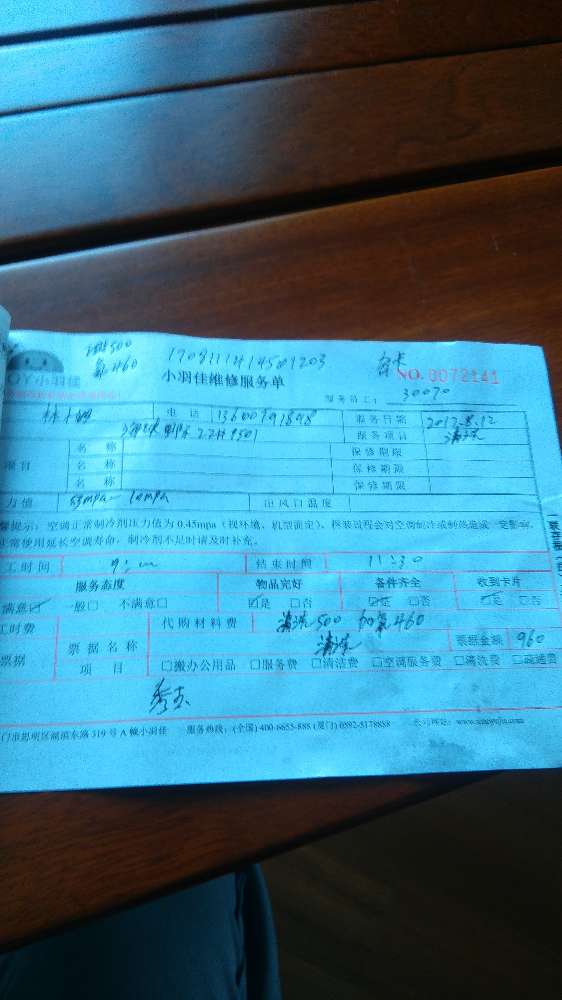 500
氟460
1708111414501203
NO.0072141
OY小羽佳
小羽佳维修服务单
服务员工: 30070
电话 服务日期 2017.8.12
服务项目 清洗
名称 保修期限
项目 名称 保修期限
名称 保修期限
力值 10mpa 出风口温度
提示:空调正常制冷剂压力值为0.45mpa(视环境、机型而定)。移装过程会对空调制冷或制热造成一定影响,
正常使用延长空调寿命,制冷剂不足时请及时补充。
工时间 9: 结束时间 11:30
服务态度 物品完好 备件齐全 收到卡片
满意☑ 一般□ 不满意□ ☑是 □否 ☑是 □否 ☑是 □否
工时费 代购材料费 清洗500 加氟460
票据 票据名称 清洗 票据金额 960
项目 □搬办公用品 □服务费 □清洁费 □空调服务费 □清洗费 □疏通费
门市思明区湖滨东路319号A幢小羽佳 服务热线:(全国)400-8655-888 (厦门)0592-5178888 公司网站: www.xiaoyujia.com